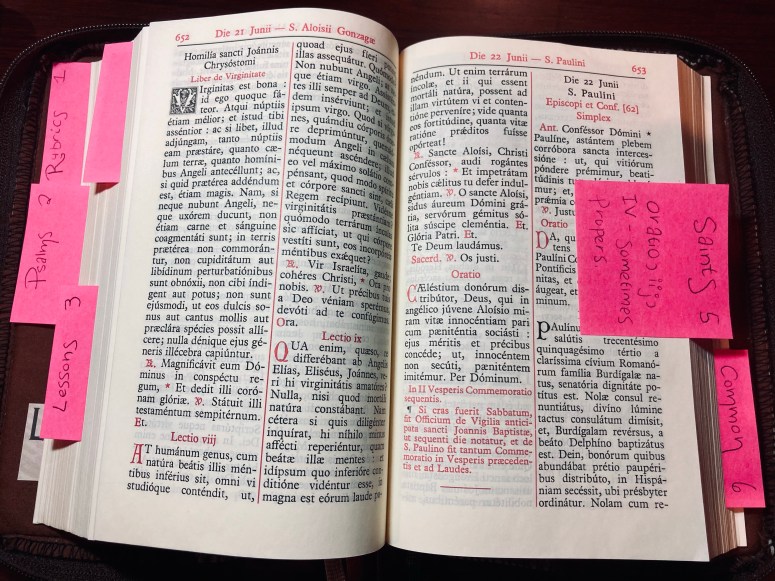 Rubrics 1
Psalms 2
Lessons 3
652 Die 21 Junii — S. Aloisii Gonzagæ
Homilía sancti Joánnis
Chrysóstomi
Liber de Virginitate
VIrginitas est bona :
id ego quoque fá-
teor. Atqui núptiis
étiam mélior; et istud tibi
asséntior : ac si libet, illud
adjúngam, tanto núptiis
eam præstáre, quanto cæ-
lum terræ, quanto homíni-
bus Angeli antecéllunt; ac,
si quid prætérea addéndum
est, étiam magis. Nam, si
neque nubunt Angeli, ne-
que uxórem ducunt, non
étiam carne et sánguine
coagmentáti sunt; in terris
prætérea non commorán-
tur, non cupiditátum aut
libídinum perturbatiónibus
sunt obnóxii, non cibi índi-
gent aut potus; non sunt
ejúsmodi, ut eos dulcis so-
nus aut cantus mollis aut
præclára spécies possit allí-
cere; nulla dénique ejus gé-
neris illécebra capiúntur.
℟. Magnificávit eum Dó-
minus in conspéctu re-
gum, * Et dedit illi coró-
nam glóriæ. ℣. Státuit illi
testaméntum sempitérnum.
Et.
Lectio viij
AT humánum genus, cum
natúra beátis illis mén-
tibus inférius sit, omni vi
studióque conténdit, ut,
quoad ejus fíeri
illas assequátur.
Non nubunt Angeli,
que étiam virgo.
tes illi semper ad Deum
dem insérviunt; et
ipsum virgo. Quod si
nes, quámdiu córpora
re deprimúntur,
modum Angeli in
néqueunt ascéndere;
eo vel máximo solátio
pénsant, quod modo
et córpore sancti sint,
Regem recípiunt.
virginitátis præstántiam
quómodo terrárum íncolas
sic afficiat, ut qui córpore
vestíti sunt, eos incorpóreis
méntibus exǽquet?
℟. Vir Israelíta,
cohéres Christi, * Ora pro
nobis. ℣. Ut précibus tuis
a Deo véniam sperémus,
devóti ad te confúgimus.
Ora.
Lectio ix
QUA enim, quæso,
differébant ab Angelis
Elías, Eliséus, Joánnes,
ri hi virginitátis amatóres?
Nulla, nisi quod mortáli
natúra constábant. Nam
cétera si quis diligénter
inquírat, hi níhilo minus
affécti reperiéntur, quam
beátæ illæ mentes : et
idípsum quo inferióre con-
ditióne vidéntur esse, in
magna est eórum laude po-
Die 22 Junii — S. Paulini 653
néndum. Ut enim terrárum
íncolæ, et ii qui essent
mortáli natúra, possent ad
illam virtútem vi et conten-
tióne perveníre; vide quanta
eos fortitúdine, quanta vitæ
ratióne prǽditos fuísse
opórteat!
℟. Sancte Aloísi, Christi
Conféssor, audi rogántes
sérvulos : * Et impetrátam
nobis cǽlitus tu defer indul-
géntiam. ℣. O sancte Aloísi,
sidus áureum Dómini grá-
tia, servórum gémitus só-
lita súscipe cleméntia. Et.
Glória Patri. Et.
Te Deum laudámus.
Sacerd. ℣. Os justi.
Oratio
CÆléstium donórum dis-
tribútor, Deus, qui in
angélico júvene Aloísio mi-
ram vitæ innocéntiam pari
cum pæniténtia sociásti :
ejus méritis et précibus
concéde; ut, innocéntem
non secúti, pæniténtem
imitémur. Per Dóminum.
In II Vesperis Commemoratio
sequentis.
¶ Si cras fuerit Sabbatum,
fit Officium de Vigilia antici-
pata sancti Joannis Baptistæ,
ut sequenti die notatur, et de
S. Paulino fit tantum Comme-
moratio in Vesperis præceden-
tis et ad Laudes.
Die 22 Junii
S. Paulini
Episcopi et Conf. [62]
Simplex
Ant. Conféssor Dómini *
Paulíne, astántem plebem
corróbora sancta interces-
sióne : ut, qui vitiórum
póndere prémimur, beati-
túdinis
mur; et,
prǽmia
℣. Justu
Oratio
DA, qu
tens
Paulíni Co
Pontíficis
nitas, et
áugeat, et
minum.
PAulínu
salútis trecentésimo
quinquagésimo tértio a
claríssima cívium Romanó-
rum família Burdígalæ na-
tus, senatória dignitáte po-
títus est. Nolæ consul re-
nuntiátus, divíno lúmine
tactus consulátum dimísit,
et, Burdígalam revérsus, a
beáto Delphíno baptizátus
est. Dein, bonórum quibus
abundábat prétio paupéri-
bus distribúto, in Hispá-
niam secéssit, ubi présbyter
ordinátur. Nolam cum re-
Saints 5
oratio iij
IV - Sometimes
Propers
Common 6